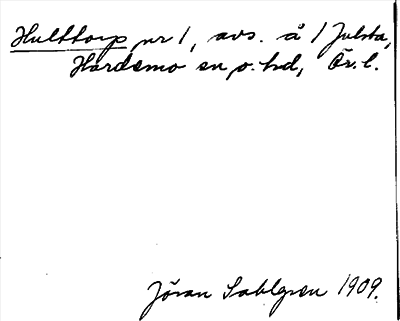 Hulttorp nr 1, avs. å 1 Julsta,
Hardemo sn o. hd, Ör. l.
Jöran Sahlgren 1909.